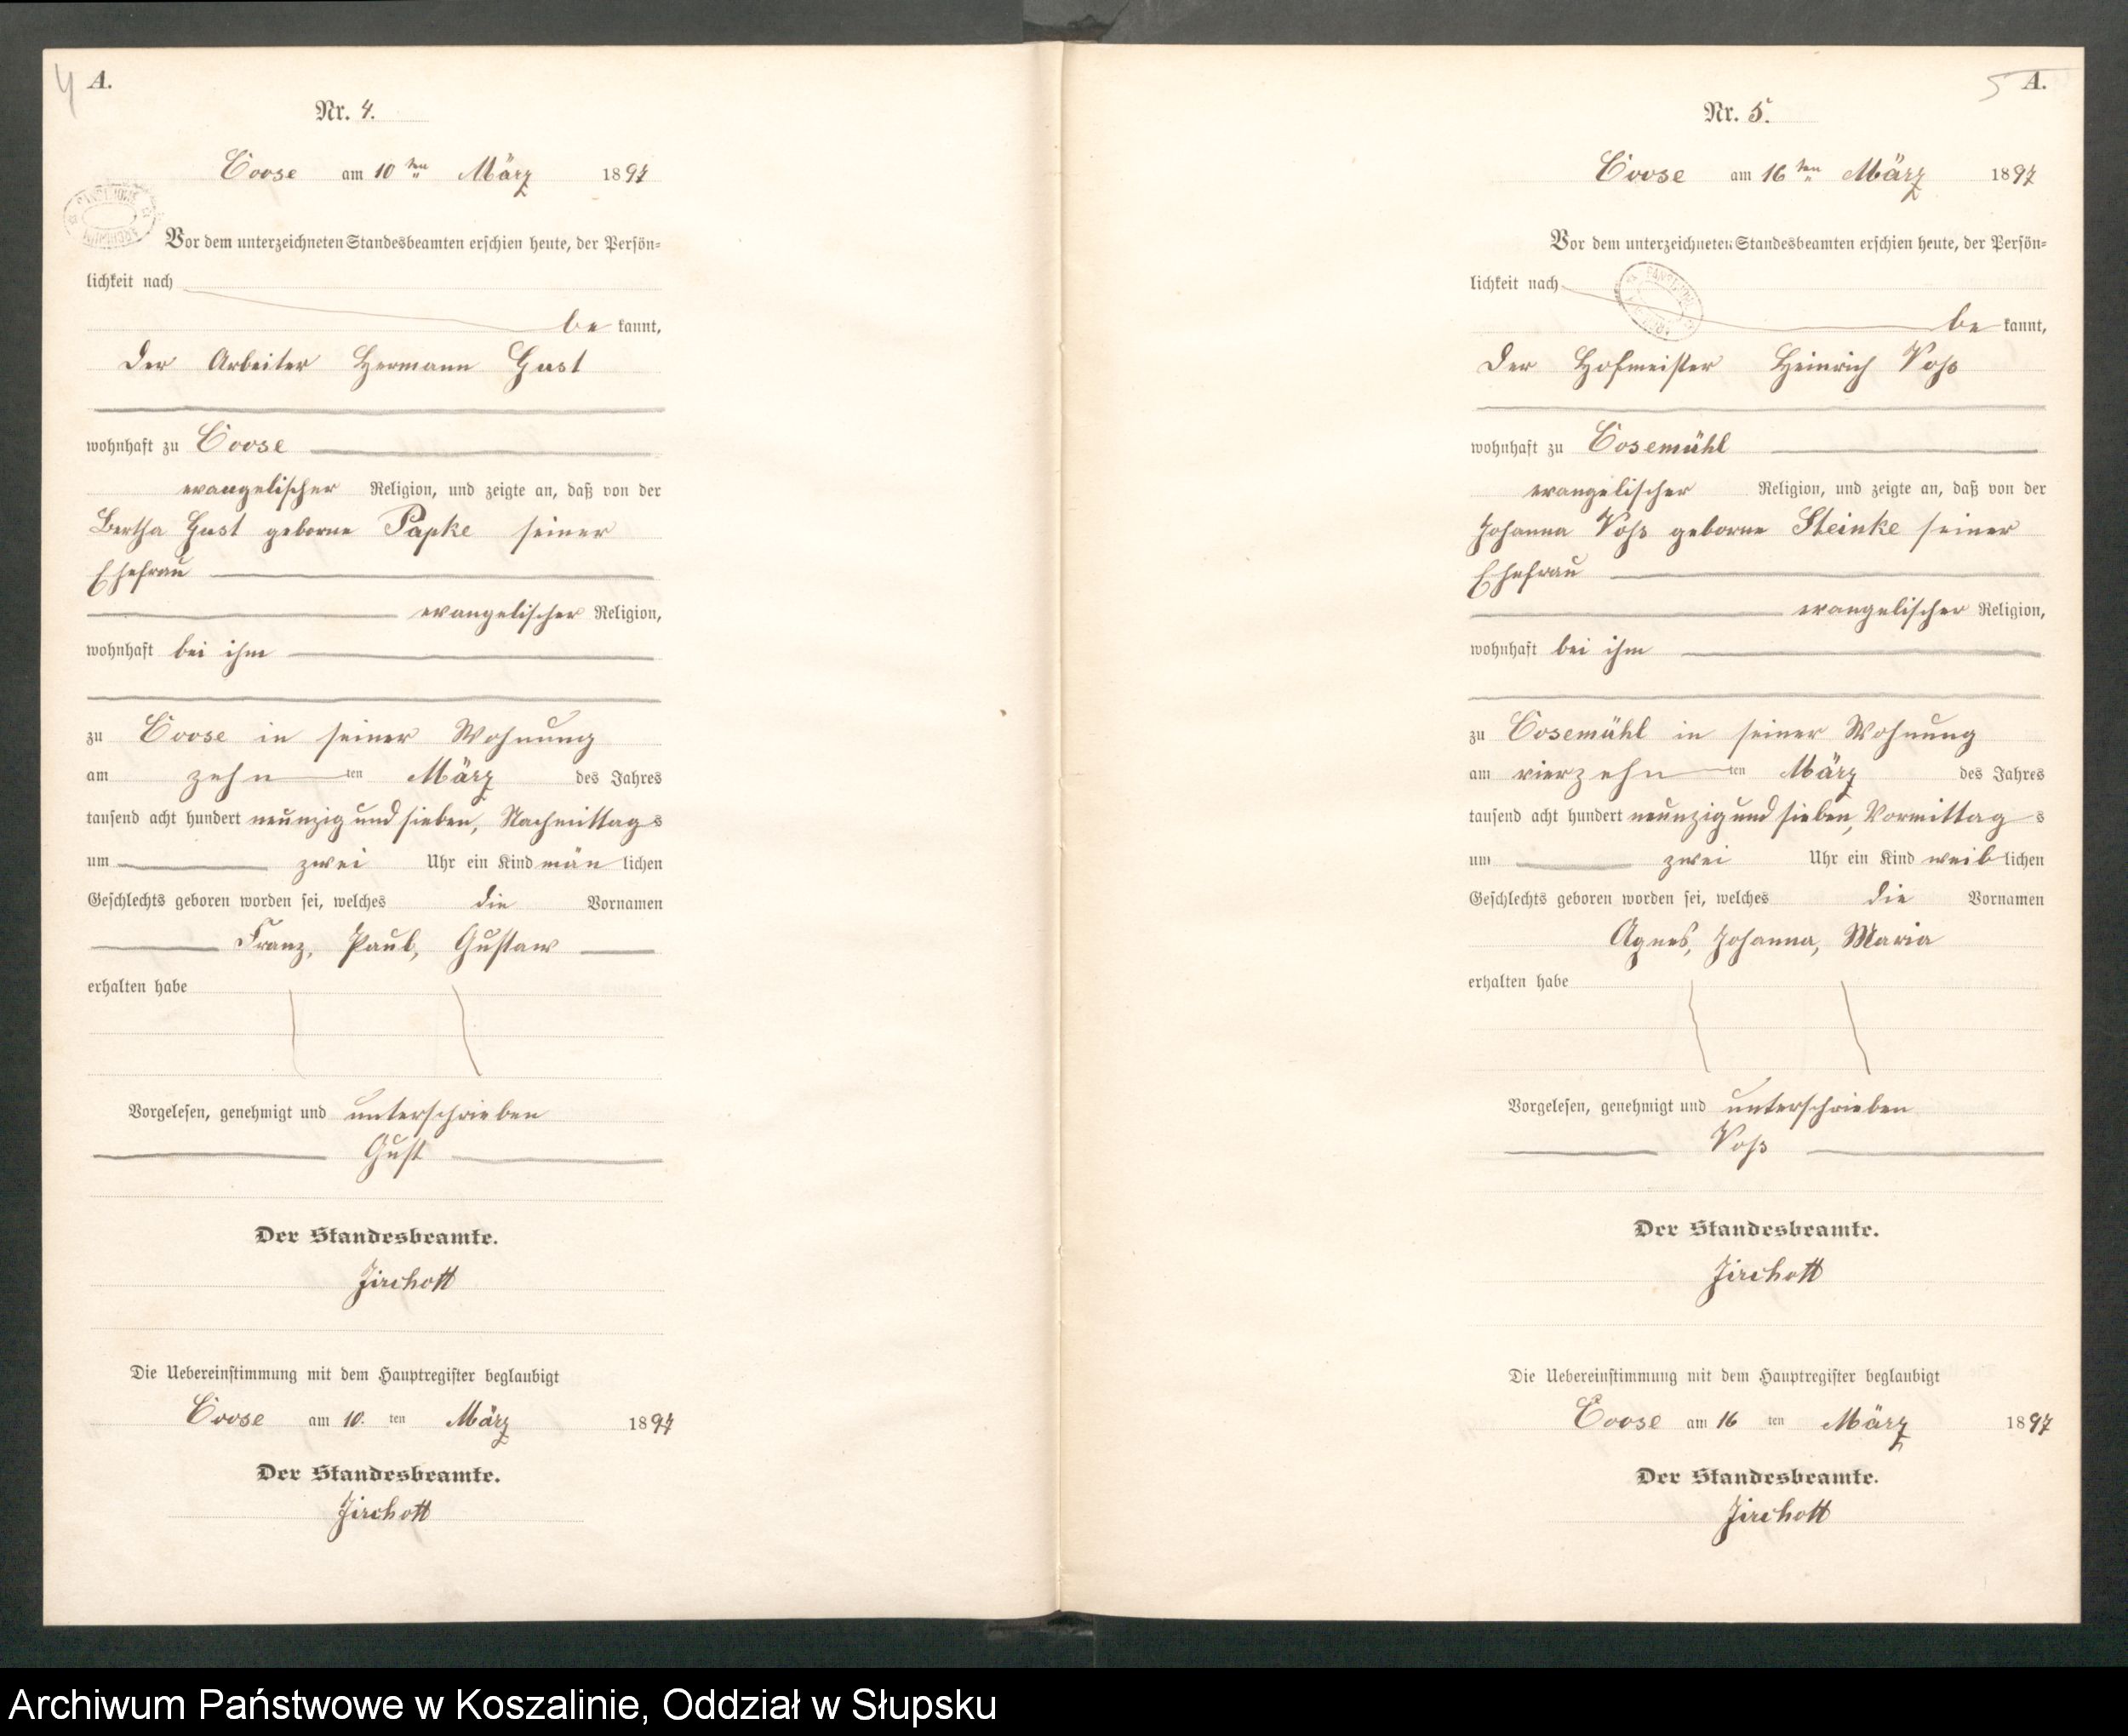 4 A.
Nr. 4.
Coose am 10ten März 1897
Vor dem unterzeichneten Standesbeamten erschien heute, der Persön=
lichkeit nach
be kannt,
der Arbeiter Hermann Gust
wohnhaft zu Coose
evangelischer Religion, und zeigte an, daß von der
Bertha Gust geborne Papke seiner
Ehefrau
evangelischer Religion,
wohnhaft bei ihm
zu Coose in seiner Wohnung
am zehn ten März des Jahres
tausend acht hundert neunzig und sieben, Nachmittag s
um zwei Uhr ein Kind män lichen
Geschlechts geboren worden sei, welches die Vornamen
Franz, Paul, Gustaw
erhalten habe
Vorgelesen, genehmigt und unterschrieben
Gust
Der Standesbeamte.
Zirchott
Die Uebereinstimmung mit dem Hauptregister beglaubigt
Coose am 10. ten März 1897
Der Standesbeamte.
Zirchott
5 A.
Nr. 5.
Coose am 16ten März 1897
Vor dem unterzeichneten Standesbeamten erschien heute, der Persön=
lichkeit nach
be kannt,
der Hofmeister Heinrich Voß
wohnhaft zu Cosemühl
evangelischer Religion, und zeigte an, daß von der
Johanna Voß geborne Steinke seiner
Ehefrau
evangelischer Religion,
wohnhaft bei ihm
zu Cosemühl in seiner Wohnung
am vierzehn ten März des Jahres
tausend acht hundert neunzig und sieben, Vormittag s
um zwei Uhr ein Kind weib lichen
Geschlechts geboren worden sei, welches die Vornamen
Agnes, Johanna, Maria
erhalten habe
Vorgelesen, genehmigt und unterschrieben
Voß
Der Standesbeamte.
Zirchott
Die Uebereinstimmung mit dem Hauptregister beglaubigt
Coose am 16 ten März 1897
Der Standesbeamte.
Zirchott
Archiwum Państwowe w Koszalinie, Oddział w Słupsku